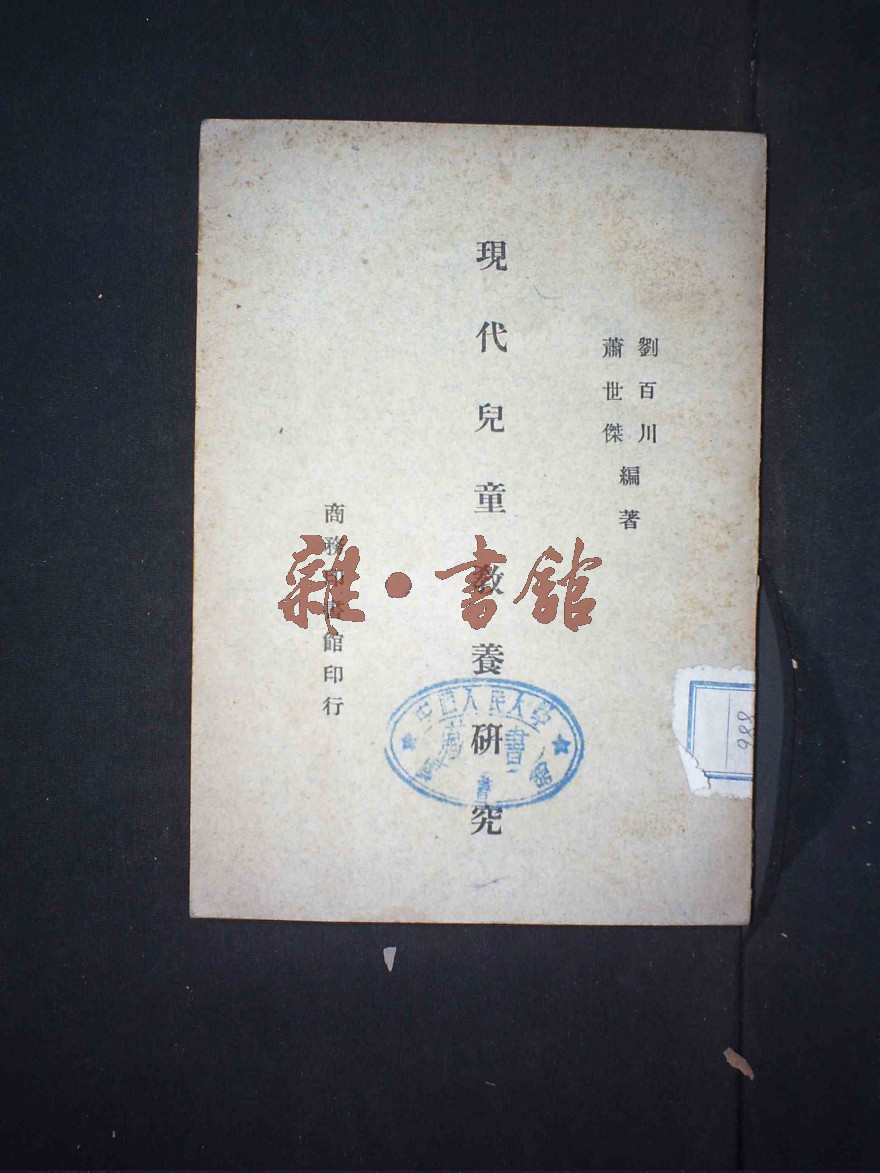 劉百川
蕭世傑
編著
現代兒童教養研究
商務印書館印行
雜·書館
中國人民大學
圖書館
886